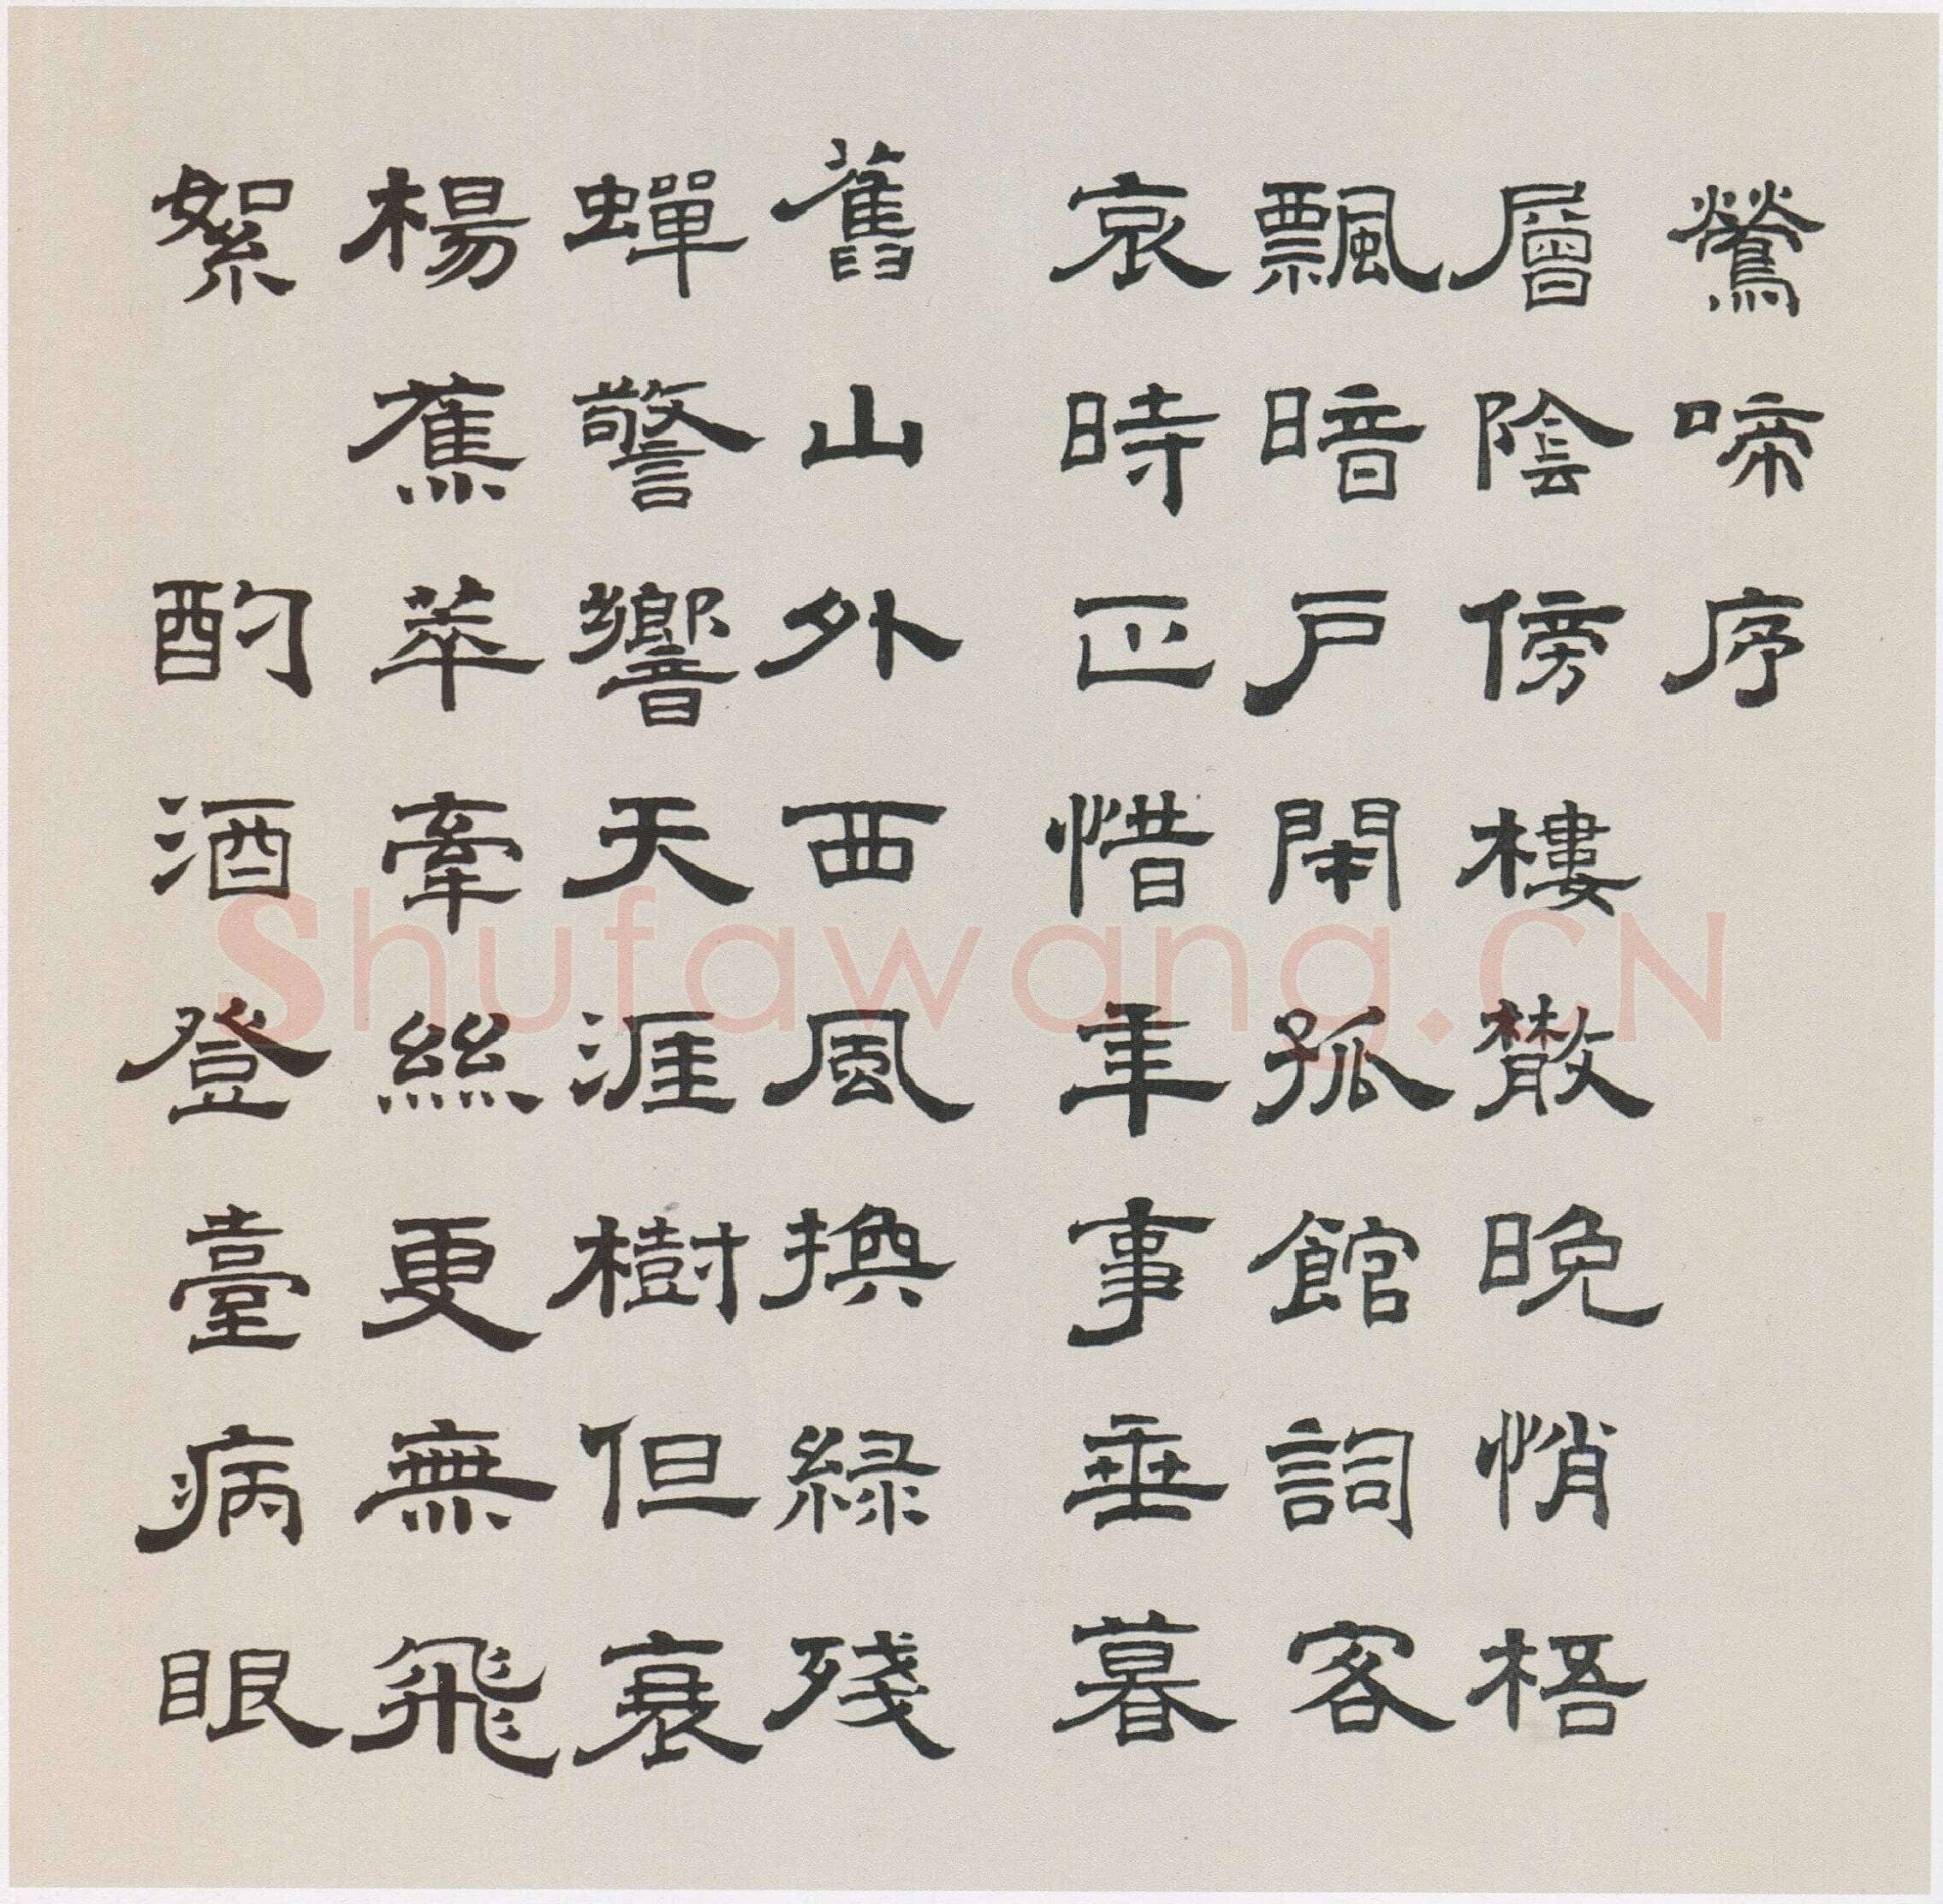 鶯啼序
層陰傍樓散晚悄梧
飄暗戶閑孤館詞客
哀時正惜年事垂暮
舊山外西風換緑殘
蟬警響天涯樹但衰
楊蕉萃牽絲更無飛
絮 酌酒登臺病眼
Shufawang.CN